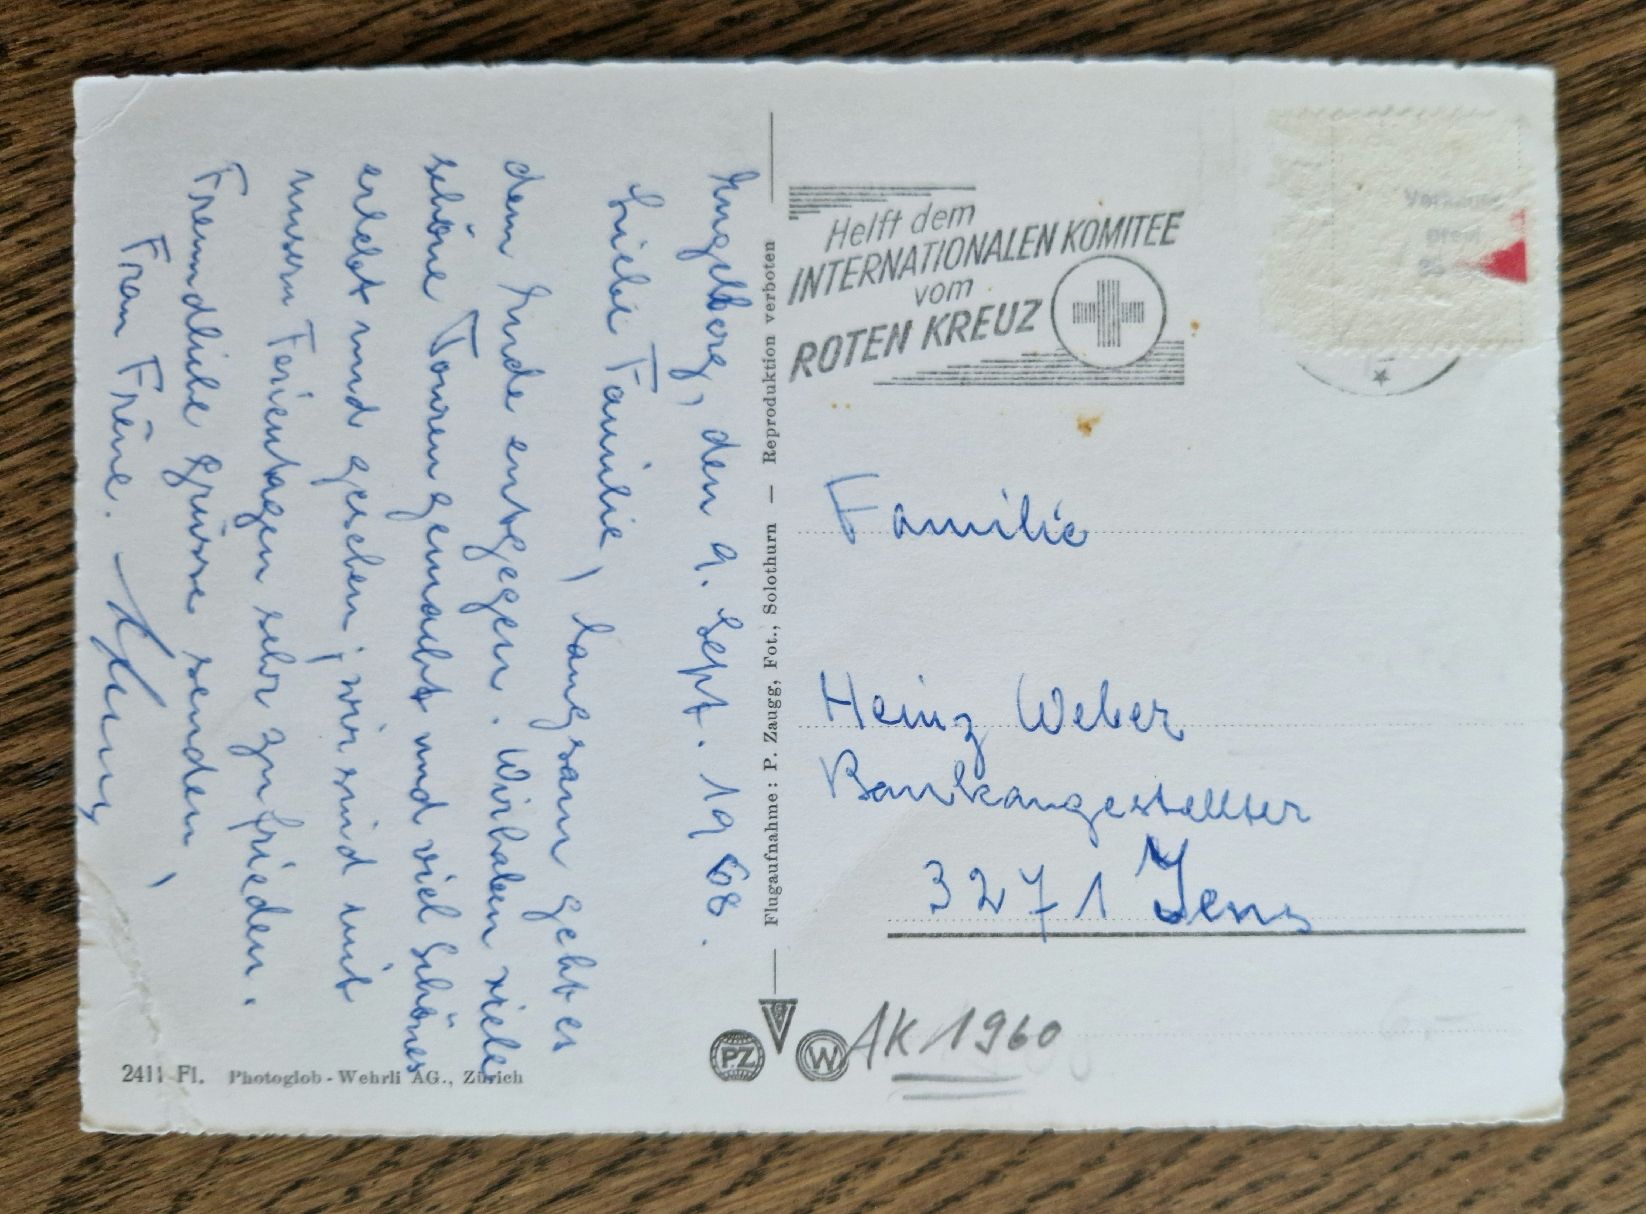 Engelberg, den 9. Sept. 1968.
Liebe Familie, langsam geht es
dem Ende entgegen. Wir haben viele
schöne Touren gemacht und viel Schönes
erlebt und gesehen; wir sind mit
unsern Ferientagen sehr zufrieden.
Freundliche Grüsse senden,
Frau Frêne.
2411 Fl. Photoglob-Wehrli AG., Zürich
Flugaufnahme: P. Zaugg, Fot., Solothurn — Reproduktion verboten
PZ
W
Helft dem
INTERNATIONALEN KOMITEE
vom
ROTEN KREUZ
Familie
Heinz Weber
Bankangestellter
3271 Jens
AK 1960
6.-